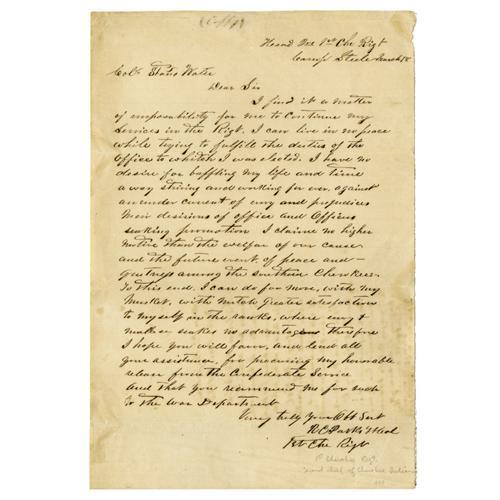 Head Qrs 1st Che Regt
Camp Steele March 18
Colo Stand Watie
Dear Sir
I find it a matter
of impossibility for me to Continue my
Services in the Regt. I can live in no peace
while trying to fulfille the duties of the
Office to whitch I was elected. I have no
desire for baffling my life and time
a way striving and working for ever against
an under current of envy and prejudices
men desirious of office and Officers
seaking promotion I claime no higher
motive than the welfare of our cause
and the future event of peace and
quitness among the Southern Cherokees
To this end, I can do far more, with my
Musket, with mutch greater satisfaction
to myself in the ranks, where envy &
malice seakes no advantages therefore
I hope you will favor, and lend all
your assistance, for procuring my honorable
release from the Confederate Service
And that you recommend me for such
to the War Department
Very truly Your Obt Sert
R C Parks
1st Che Regt
Cherokee Regt